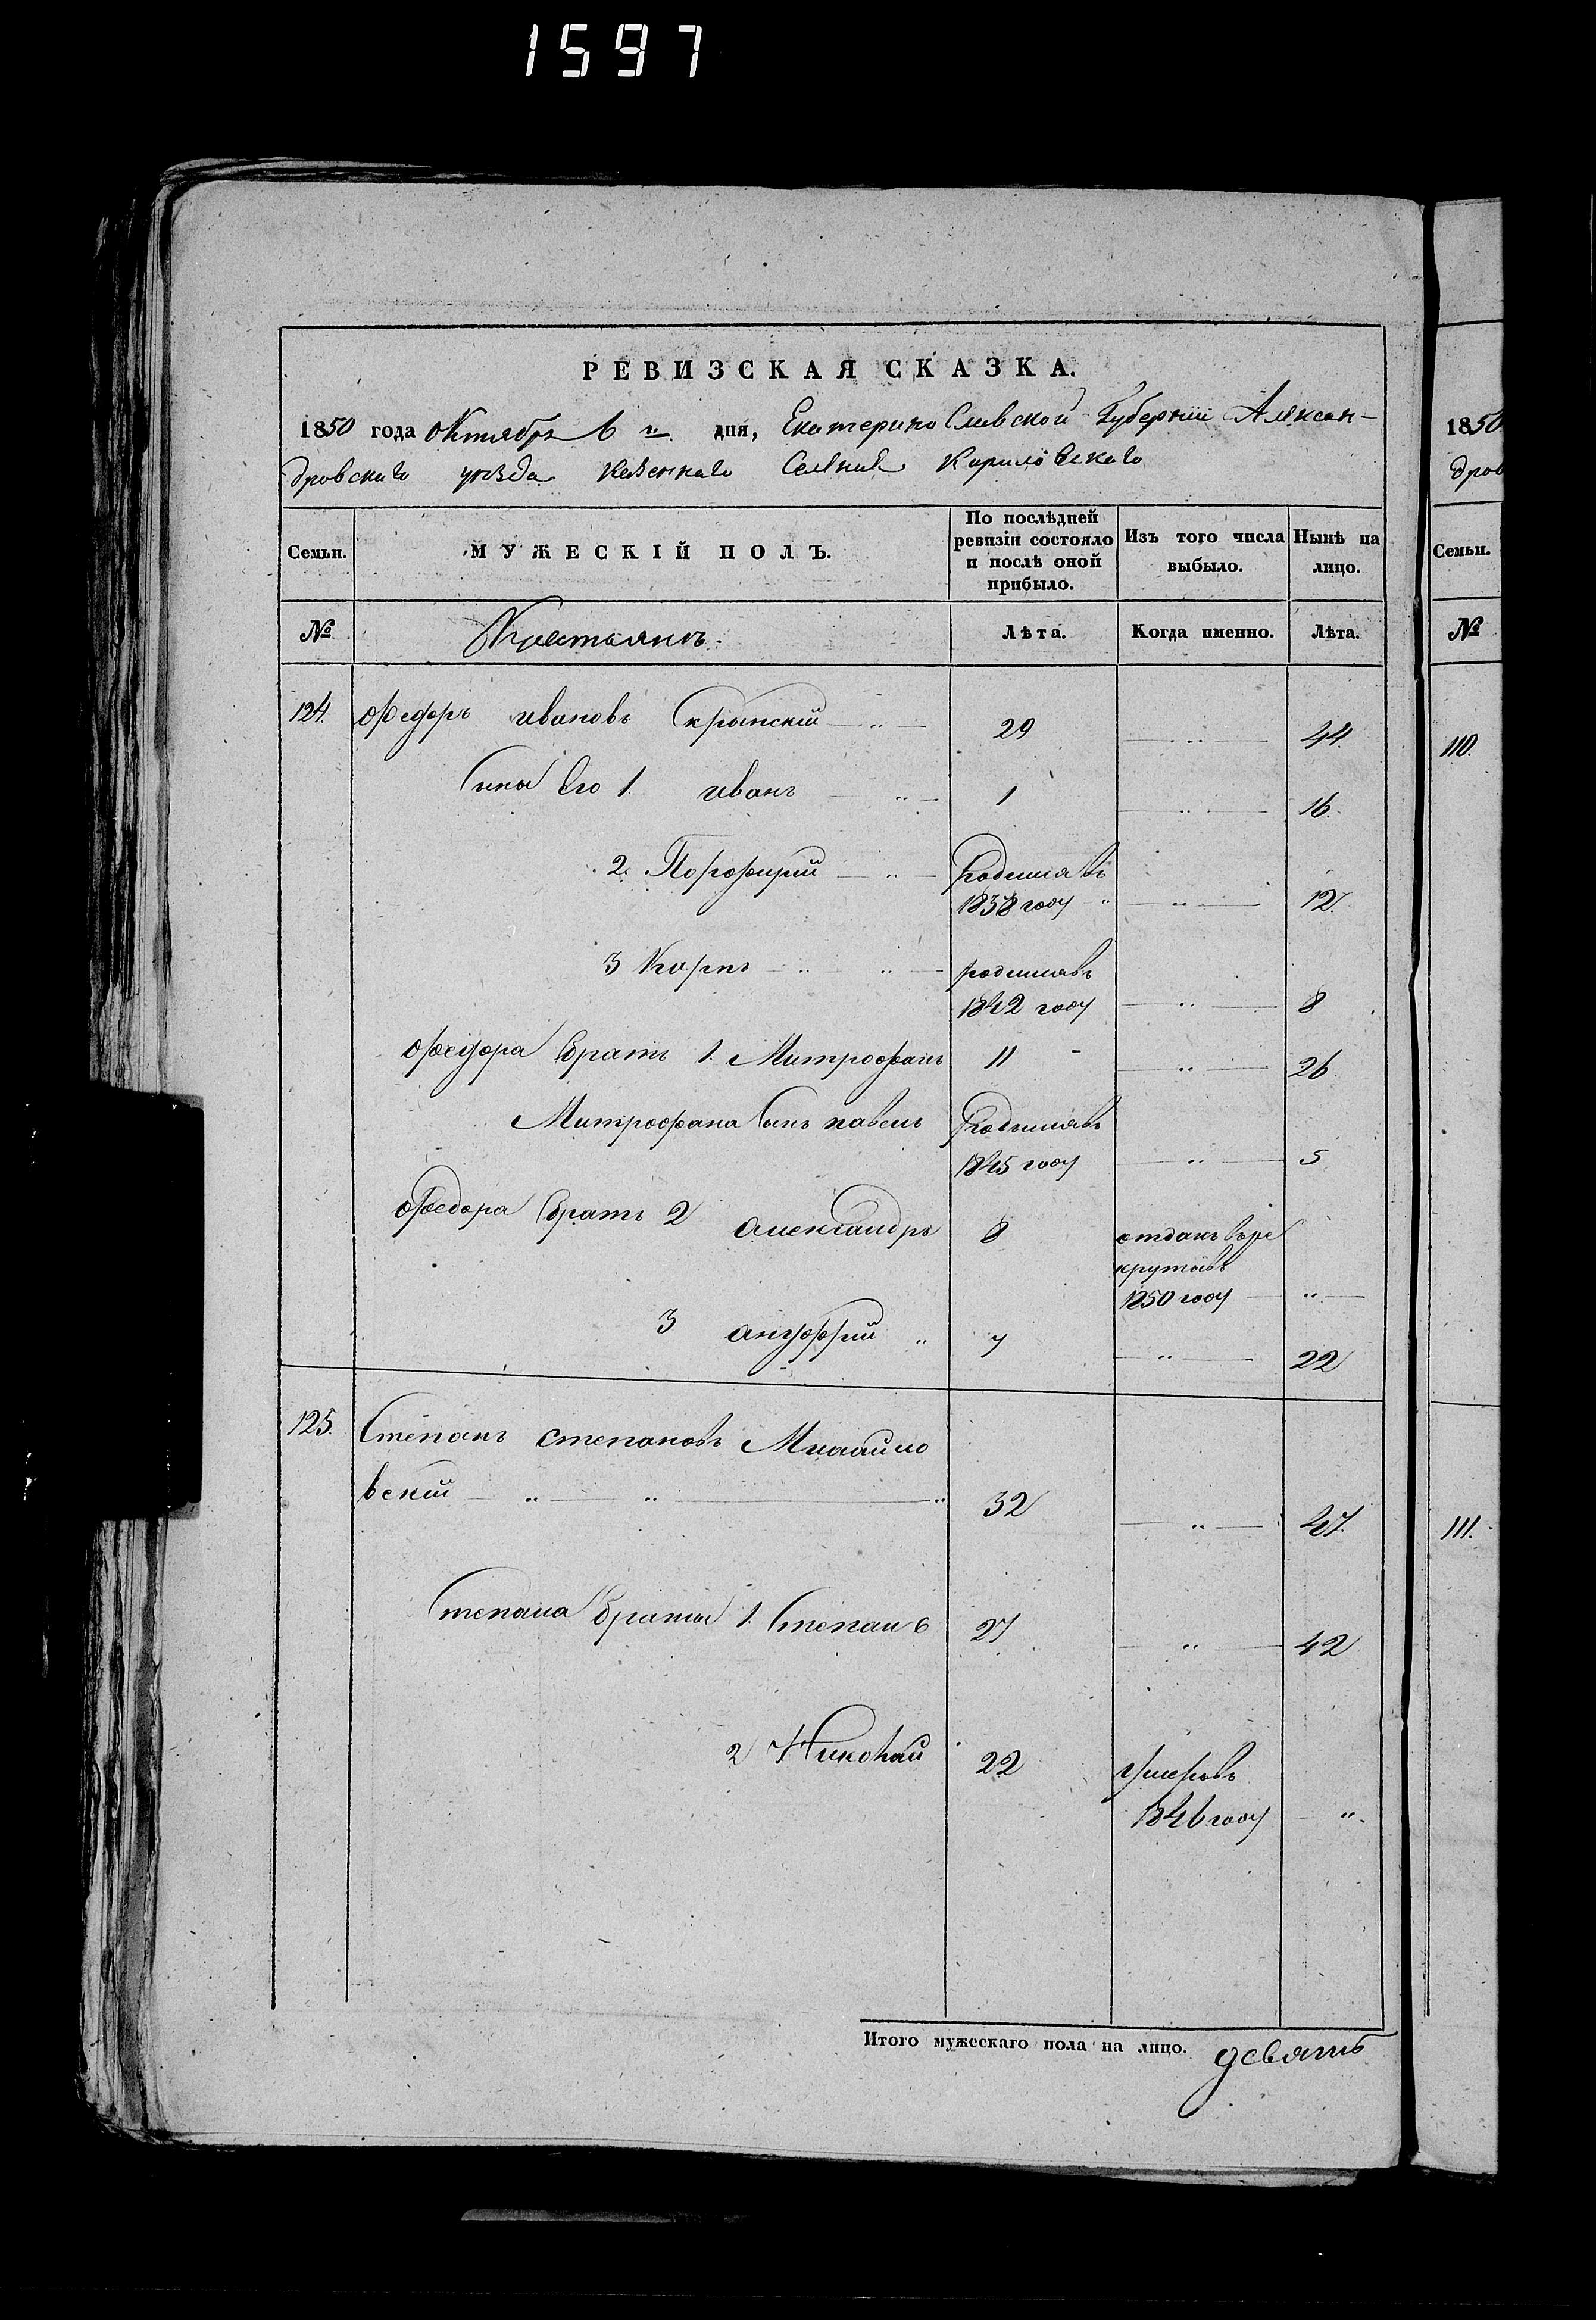 1597
РЕВИЗСКАЯ СКАЗКА.
1850 года Октября 6 го дня, Екатеринославской Губерніи Алексан-
дровскаго уѣзда казеннаго Селенія Кириловскаго
Семьи. МУЖЕСКІЙ ПОЛЪ. По послѣдней ревизіи состояло и послѣ оной прибыло. Изъ того числа выбыло. Нынѣ на лицо.
№ Крестьянъ. Лѣта. Когда именно. Лѣта.
124. Федоръ ивановъ Крынскій 29 44.
Сына Его 1. иванъ 1 16.
2. Порфирий Родился въ
1838 году 12.
3 Карпъ родился въ
1842 году 8
Федора братъ 1. Митрофанъ 11 26
Митрофана Сынъ павелъ Родился въ
1845 году 5
Федора братъ 2 александръ 8 отданъ въ ре
крутовъ
1850 году
3 ануфрий 7 22
125. Степанъ степановъ Михайло
вский 32 47.
Степана братья 1. Степанъ 27 42
2 Николай 22 умеръ въ
1846 году
Итого мужескаго пола на лицо. девять
1850
дров
Семьи.
№
110.
111.